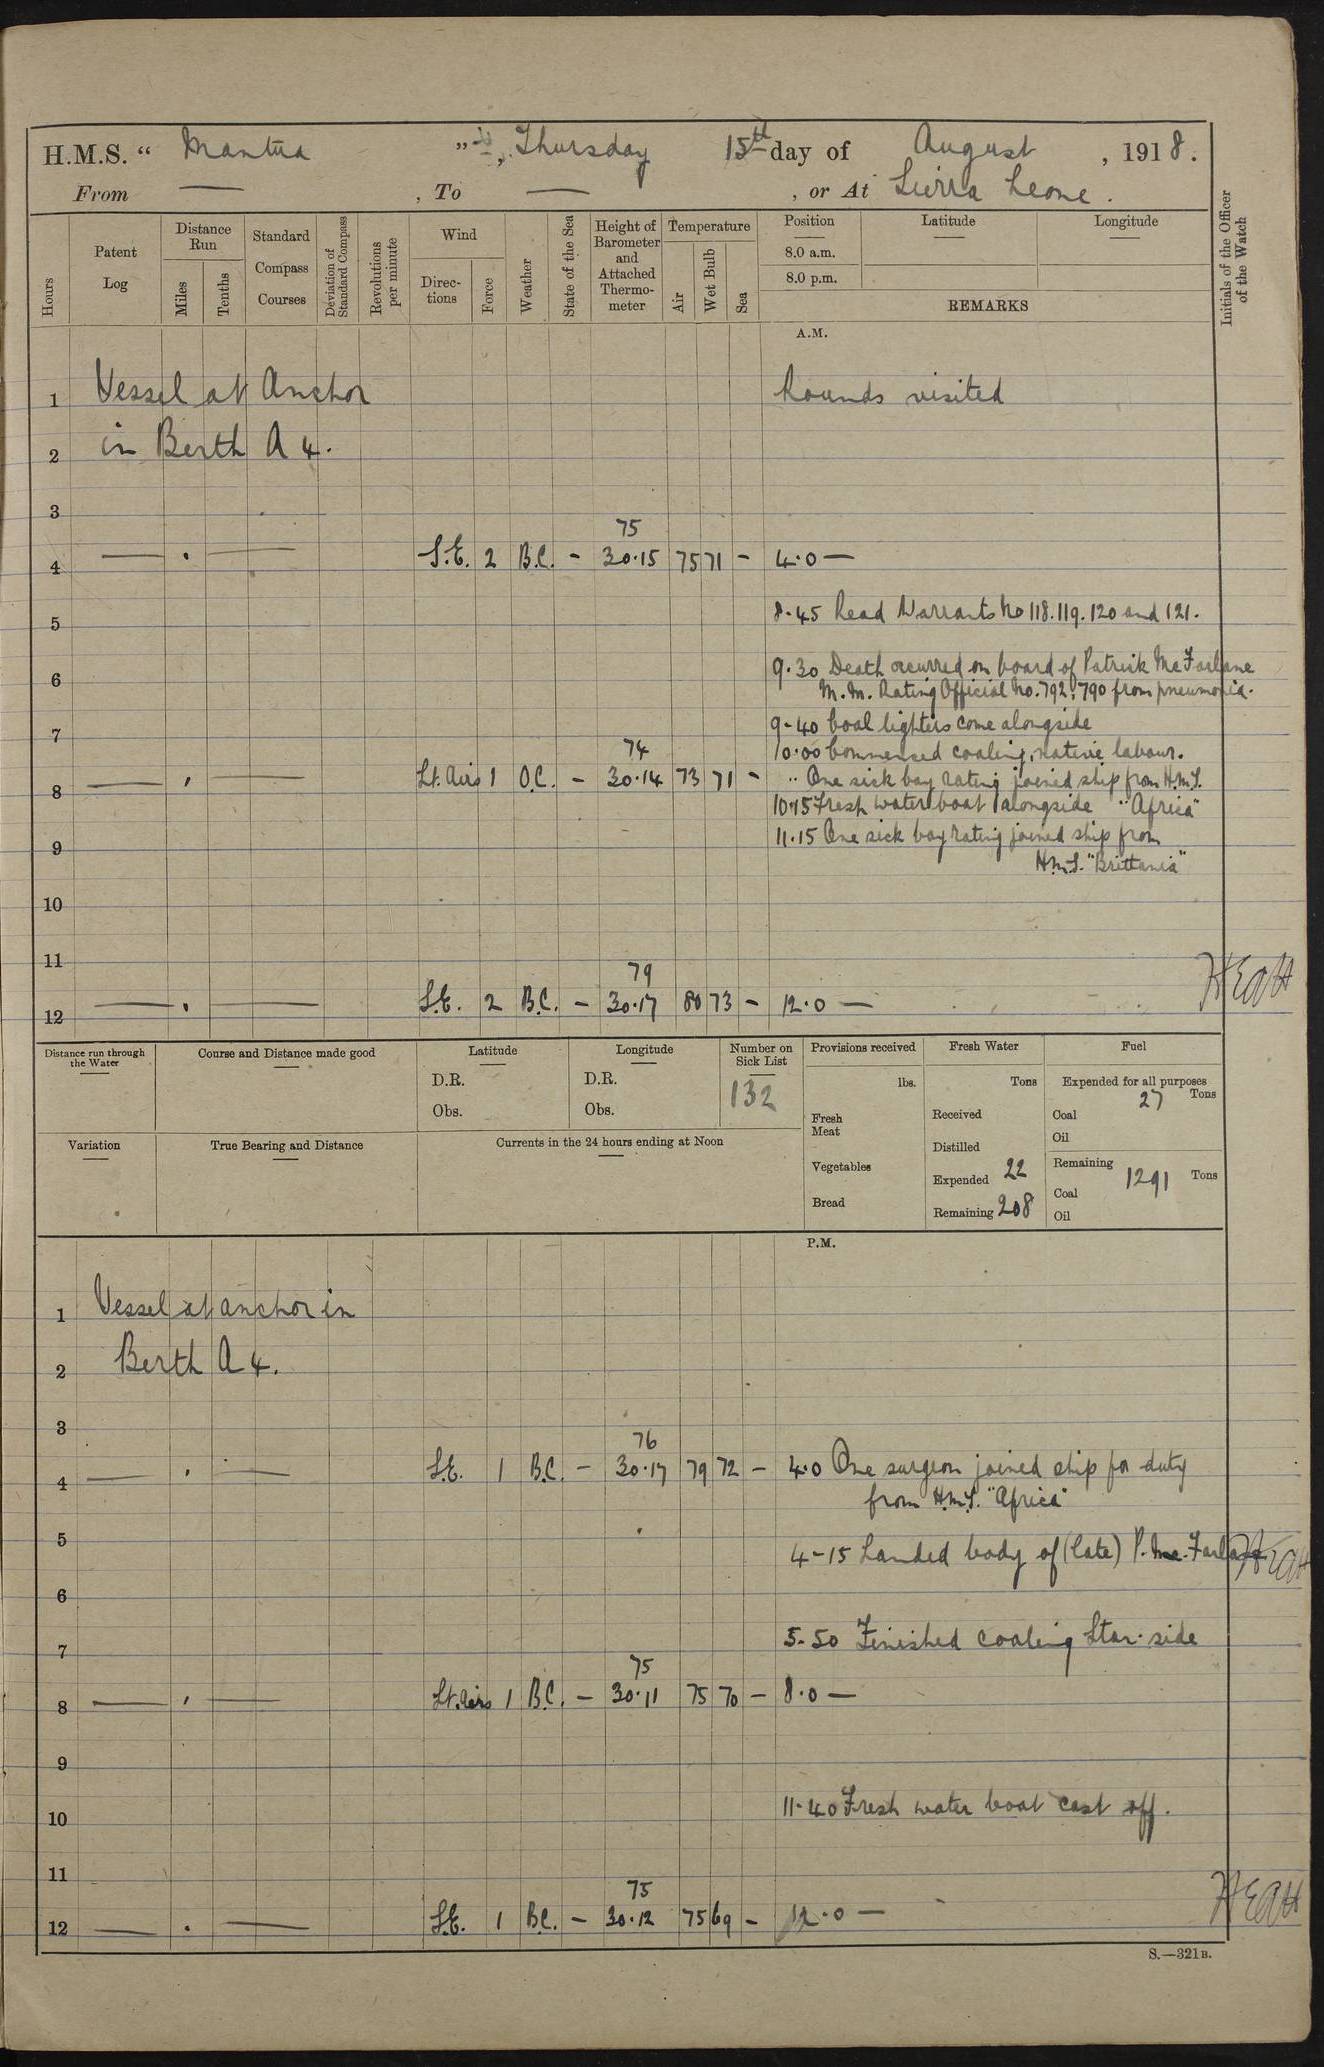 H.M.S. “ Mantua ”, Thursday 15th day of August, 1918.
From — , To — , or At Sierra Leone.
Hours
Patent Log
Distance Run
Miles
Tenths
Standard Compass Courses
Deviation of Standard Compass
Revolutions per minute
Wind
Directions
Force
Weather
State of the Sea
Height of Barometer and Attached Thermometer
Temperature
Air
Wet Bulb
Sea
Position
Latitude
Longitude
8.0 a.m.
8.0 p.m.
REMARKS
Initials of the Officer of the Watch
A.M.
1 Vessel at Anchor Rounds visited
2 in Berth A 4.
3
75
4 — . — S.E. 2 B.C. - 30.15 75 71 - 4.0 —
8.45 Read Warrants No 118. 119. 120 and 121.
5
9.30 Death occurred on board of Patrick McFarlane
6
M.M. Rating Official No. 792,790 from pneumonia.
9-40 Coal lighters come alongside
7
74 10.00 Commenced coaling, native labour.
8 — . — Lt. Airs 1 O.C. - 30.14 73 71 - " One sick bay rating joined ship from H.M.S.
10.15 Fresh water boat alongside "Africa"
9 11.15 One sick bay rating joined ship from
H.M.S. "Brittania"
10
11
79
12 — . — S.E. 2 B.C. - 30.17 80 73 - 12.0 — HEAH
Distance run through the Water
Course and Distance made good
Latitude
D.R.
Obs.
Longitude
D.R.
Obs.
Number on Sick List
132
Provisions received
lbs.
Fresh Meat
Vegetables
Bread
Fresh Water
Tons
Received
Distilled
Expended 22
Remaining 208
Fuel
Expended for all purposes
27 Tons
Coal
Oil
Remaining
1291 Tons
Coal
Oil
Variation
True Bearing and Distance
Currents in the 24 hours ending at Noon
P.M.
1 Vessel at anchor in
2 Berth A 4.
3
76
4 — . — S.E. 1 B.C. - 30.17 79 72 - 4.0 One surgeon joined ship for duty
from H.M.S. "Africa"
5 4-15 Landed body of (late) P. Mc. Farlane HEAH
6
5-50 Finished coaling Star. side
7
75
8 — . — Lt. Airs 1 B.C. - 30.11 75 70 - 8.0 —
9
11.40 Fresh water boat cast off.
10
11
75
12 — . — S.E. 1 B.C. - 30.12 75 69 - 12.0 — HEAH
S.—321B.